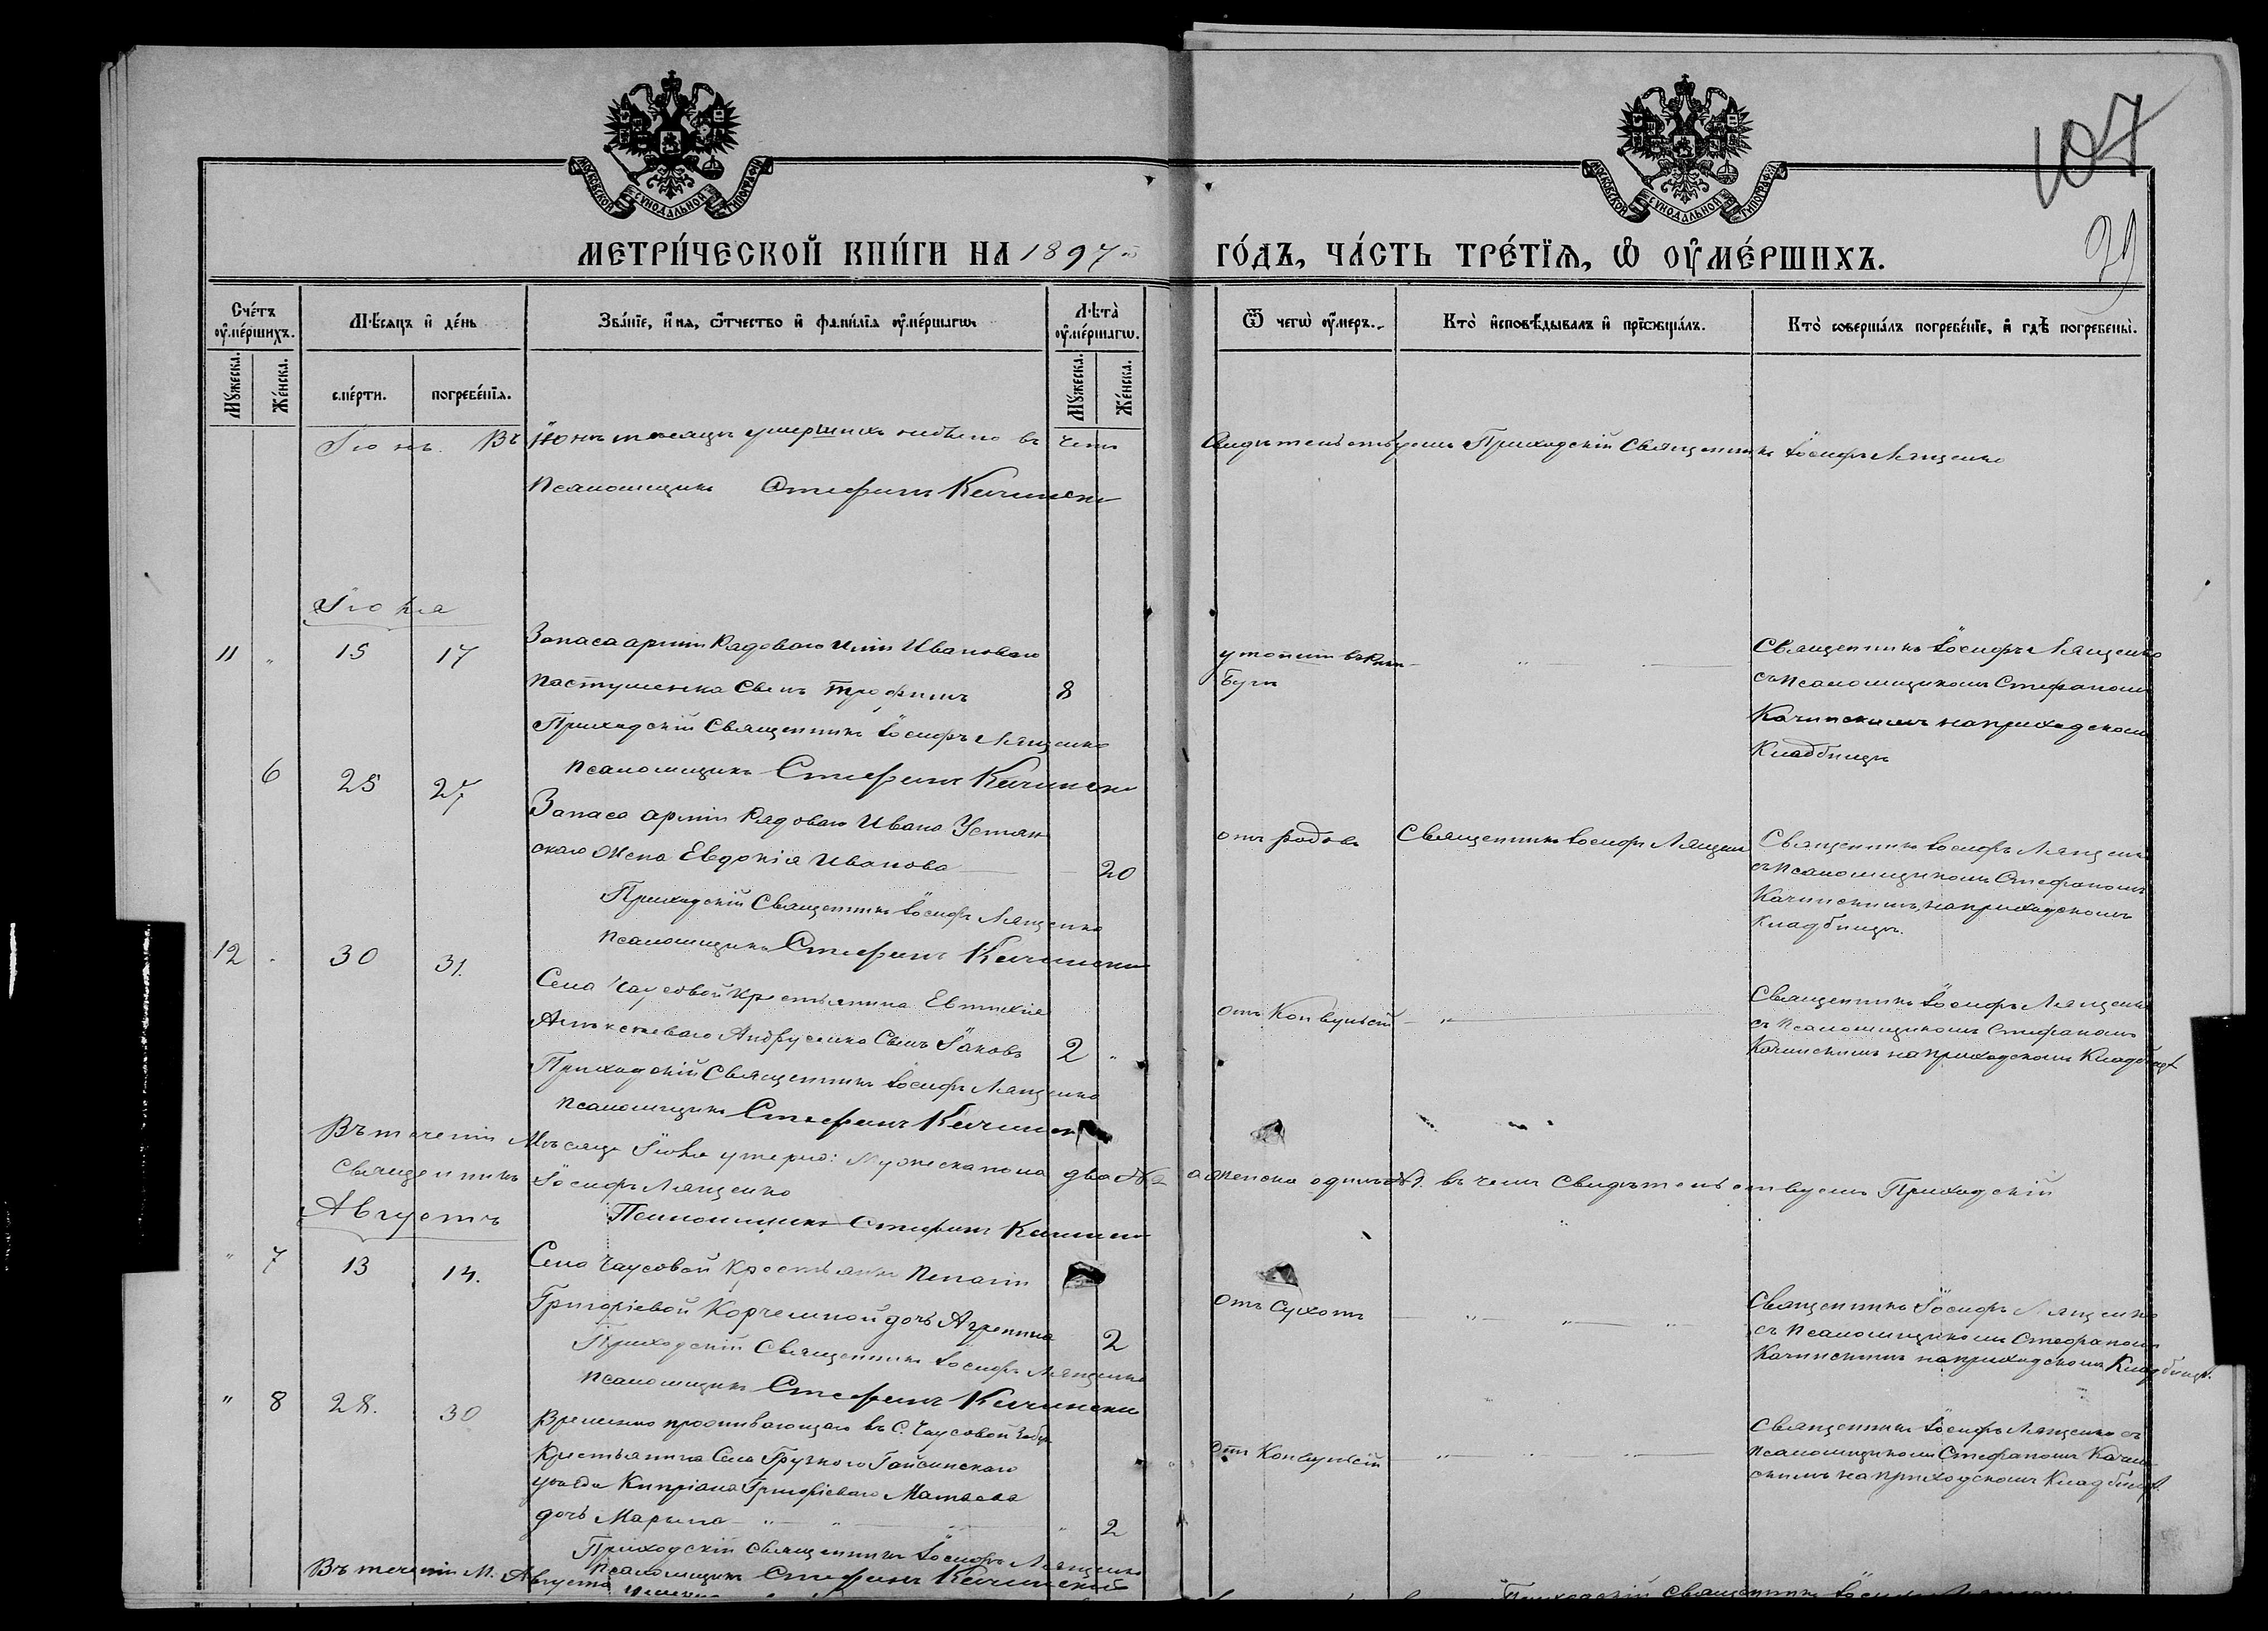 107
29
МОСКОВСКОЙ СУНОДАЛЬНОЙ ТИПОГРАФІИ
МОСКОВСКОЙ СУНОДАЛЬНОЙ ТИПОГРАФІИ
МЕТРИ́ЧЕСКОЙ КНИ́ГИ НА 1897 й ГО́ДЪ, ЧА́СТЬ ТРЕ́ТІѦ, Ѡ҆ ОУ҆МЕ́РШИХЪ.
Сче́тъ оу҆ме́ршихъ.
Мѣ́сяцъ и҆ де́нь
Зва́нїе, и҆́мѧ, ѻ҆́тчество и҆ фами́лїѧ оу҆ме́ршагѡ
Лѣ́та̀ оу҆ме́ршагѡ.
Ѿ чегѡ̀ оу҆́меръ.
Кто̀ и҆сповѣ́дывалъ и҆ прїѡбща́лъ.
Кто̀ соверша́лъ погребе́нїе, и҆ гдѣ̀ погребены̀.
Му́жеска.
Же́нска.
сме́рти.
погребе́нїѧ.
Му́жеска.
Же́нска.
Іюнь. Въ Іюнѣ мѣсяцѣ умершихъ небыло въ чемъ Свидѣтельствуемъ Приходскій Священникъ Іосифъ Лященко
Псаломщикъ Стефанъ Качински
Іюля
11 " 15 17
Запаса арміи Рядоваго Иліи Иванова
Пастушенка Сынъ Трофимъ 8
утонилъ въ Рѣкѣ
Бугѣ
Священникъ Іосифъ Лященко
съ Псаломщикомъ Стефаномъ
Качинскимъ на приходскомъ
Кладбищѣ
Приходскій Священникъ Іосифъ Лященко
Псаломщикъ Стефанъ Качински
6 25 27
Запаса арміи Рядоваго Ивана Устян
скаго жена Евдокія Иванова 20
отъ родовъ
Священникъ Іосифъ Лящен
Священникъ Іосифъ Лященко
съ Псаломщикомъ Стефаномъ
Качинскимъ на приходскомъ
Кладбищѣ.
Приходскій Священникъ Іосифъ Лященко
Псаломщикъ Стефанъ Качински
12 . 30 31.
Села Чаусовой Крестьянина Евтихія
Алексѣева Андрусенко Сынъ Іаковъ 2 "
отъ Конвульсій
Священникъ Іосифъ Лященко
съ Псаломщикомъ Стефаномъ
Качинскимъ на приходскомъ Кладбищѣ
Приходскій Священникъ Іосифъ Лященко
Псаломщикъ Стефанъ Качинс
Въ теченіи Мѣсяца Іюля умерло: Мужеска пола два 2 а женска одинъ 1. въ чемъ Свидѣтельствуемъ Приходскій
Священникъ Іосифъ Лященко
Псаломщикъ Стефанъ Качинс
Августъ
" 7 13 14.
Села Чаусовой Крестьянки Пелагіи
Григоріевой Корчемной дочь Агрепина 2
отъ Сухотъ
Священникъ Іосифъ Лященко
съ Псаломщикомъ Стефаномъ
Качинскимъ на приходскомъ Кладбищѣ.
Приходскій Священникъ Іосифъ Лященко
Псаломщикъ Стефанъ Качински
" 8 28. 30
Временно проживающаго въ С. Чаусовой
Крестьянина Села Грузкого Гайсинскаго
уѣзда Кипріана Григоріева
дочь Марина 2
отъ Конвульсій
Священникъ Іосифъ Лященко съ
Псаломщикомъ Стефаномъ Качин
скимъ на приходскомъ Кладбищѣ.
Приходскій Священникъ Іосифъ Лященко
Псаломщикъ Стефанъ Качинскій
Въ теченіи М. Августа Приходскій Священникъ Іосифъ Лященко